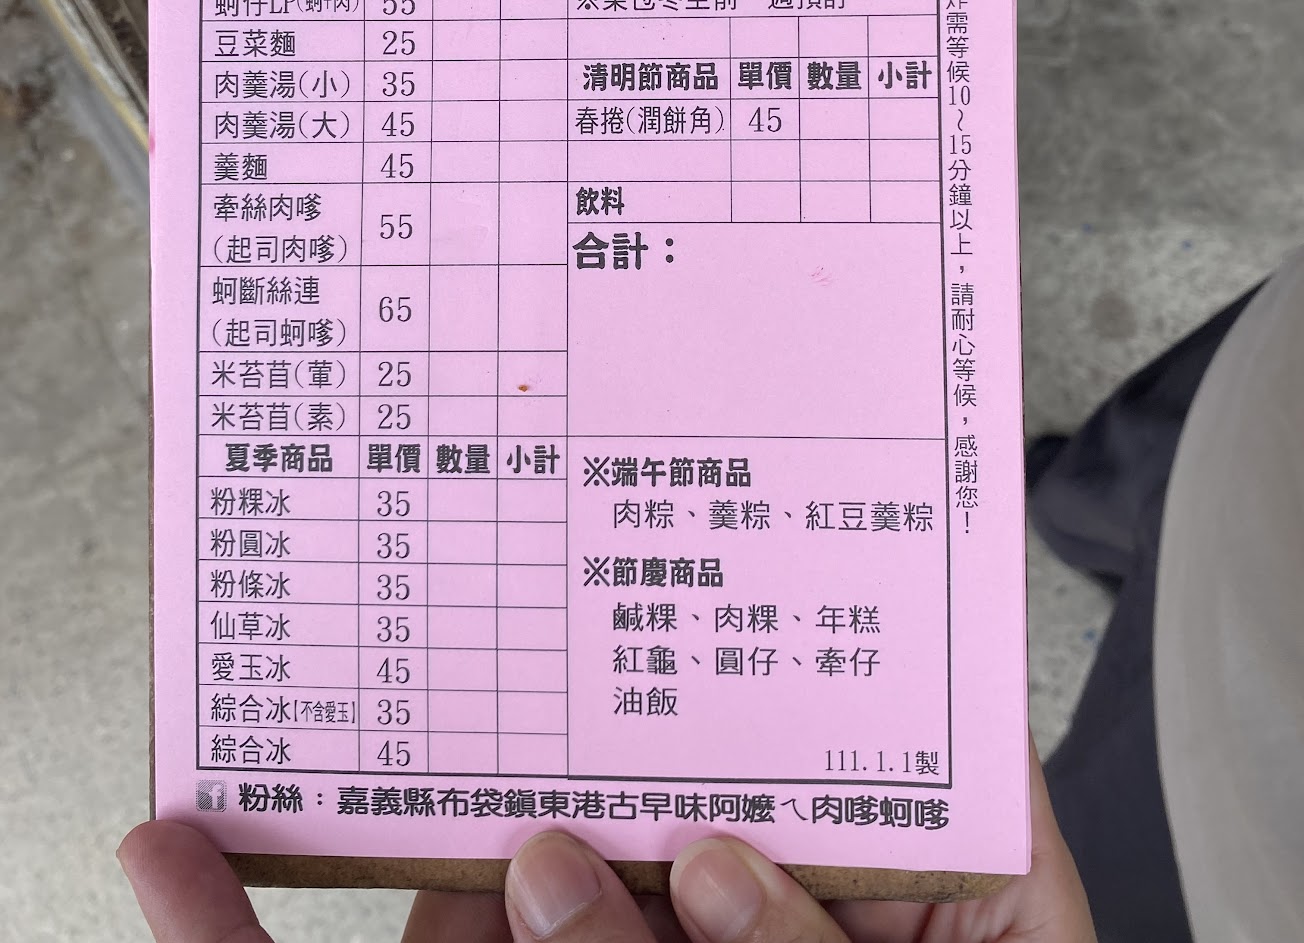 蚵仔LP(蚵+肉) 55
豆菜麵 25
肉羹湯(小) 35
肉羹湯(大) 45
羹麵 45
牽絲肉嗲
(起司肉嗲) 55
蚵斷絲連
(起司蚵嗲) 65
米苔苜(葷) 25
米苔苜(素) 25
夏季商品 單價 數量 小計
粉粿冰 35
粉圓冰 35
粉條冰 35
仙草冰 35
愛玉冰 45
綜合冰【不含愛玉】 35
綜合冰 45
清明節商品 單價 數量 小計
春捲(潤餅角) 45
飲料
合計：
※端午節商品
肉粽、羹粽、紅豆羹粽
※節慶商品
鹹粿、肉粿、年糕
紅龜、圓仔、牽仔
油飯
111.1.1製
需等候10~15分鐘以上，請耐心等候，感謝您！
f 粉絲：嘉義縣布袋鎮東港古早味阿嬤ㄟ肉嗲蚵嗲